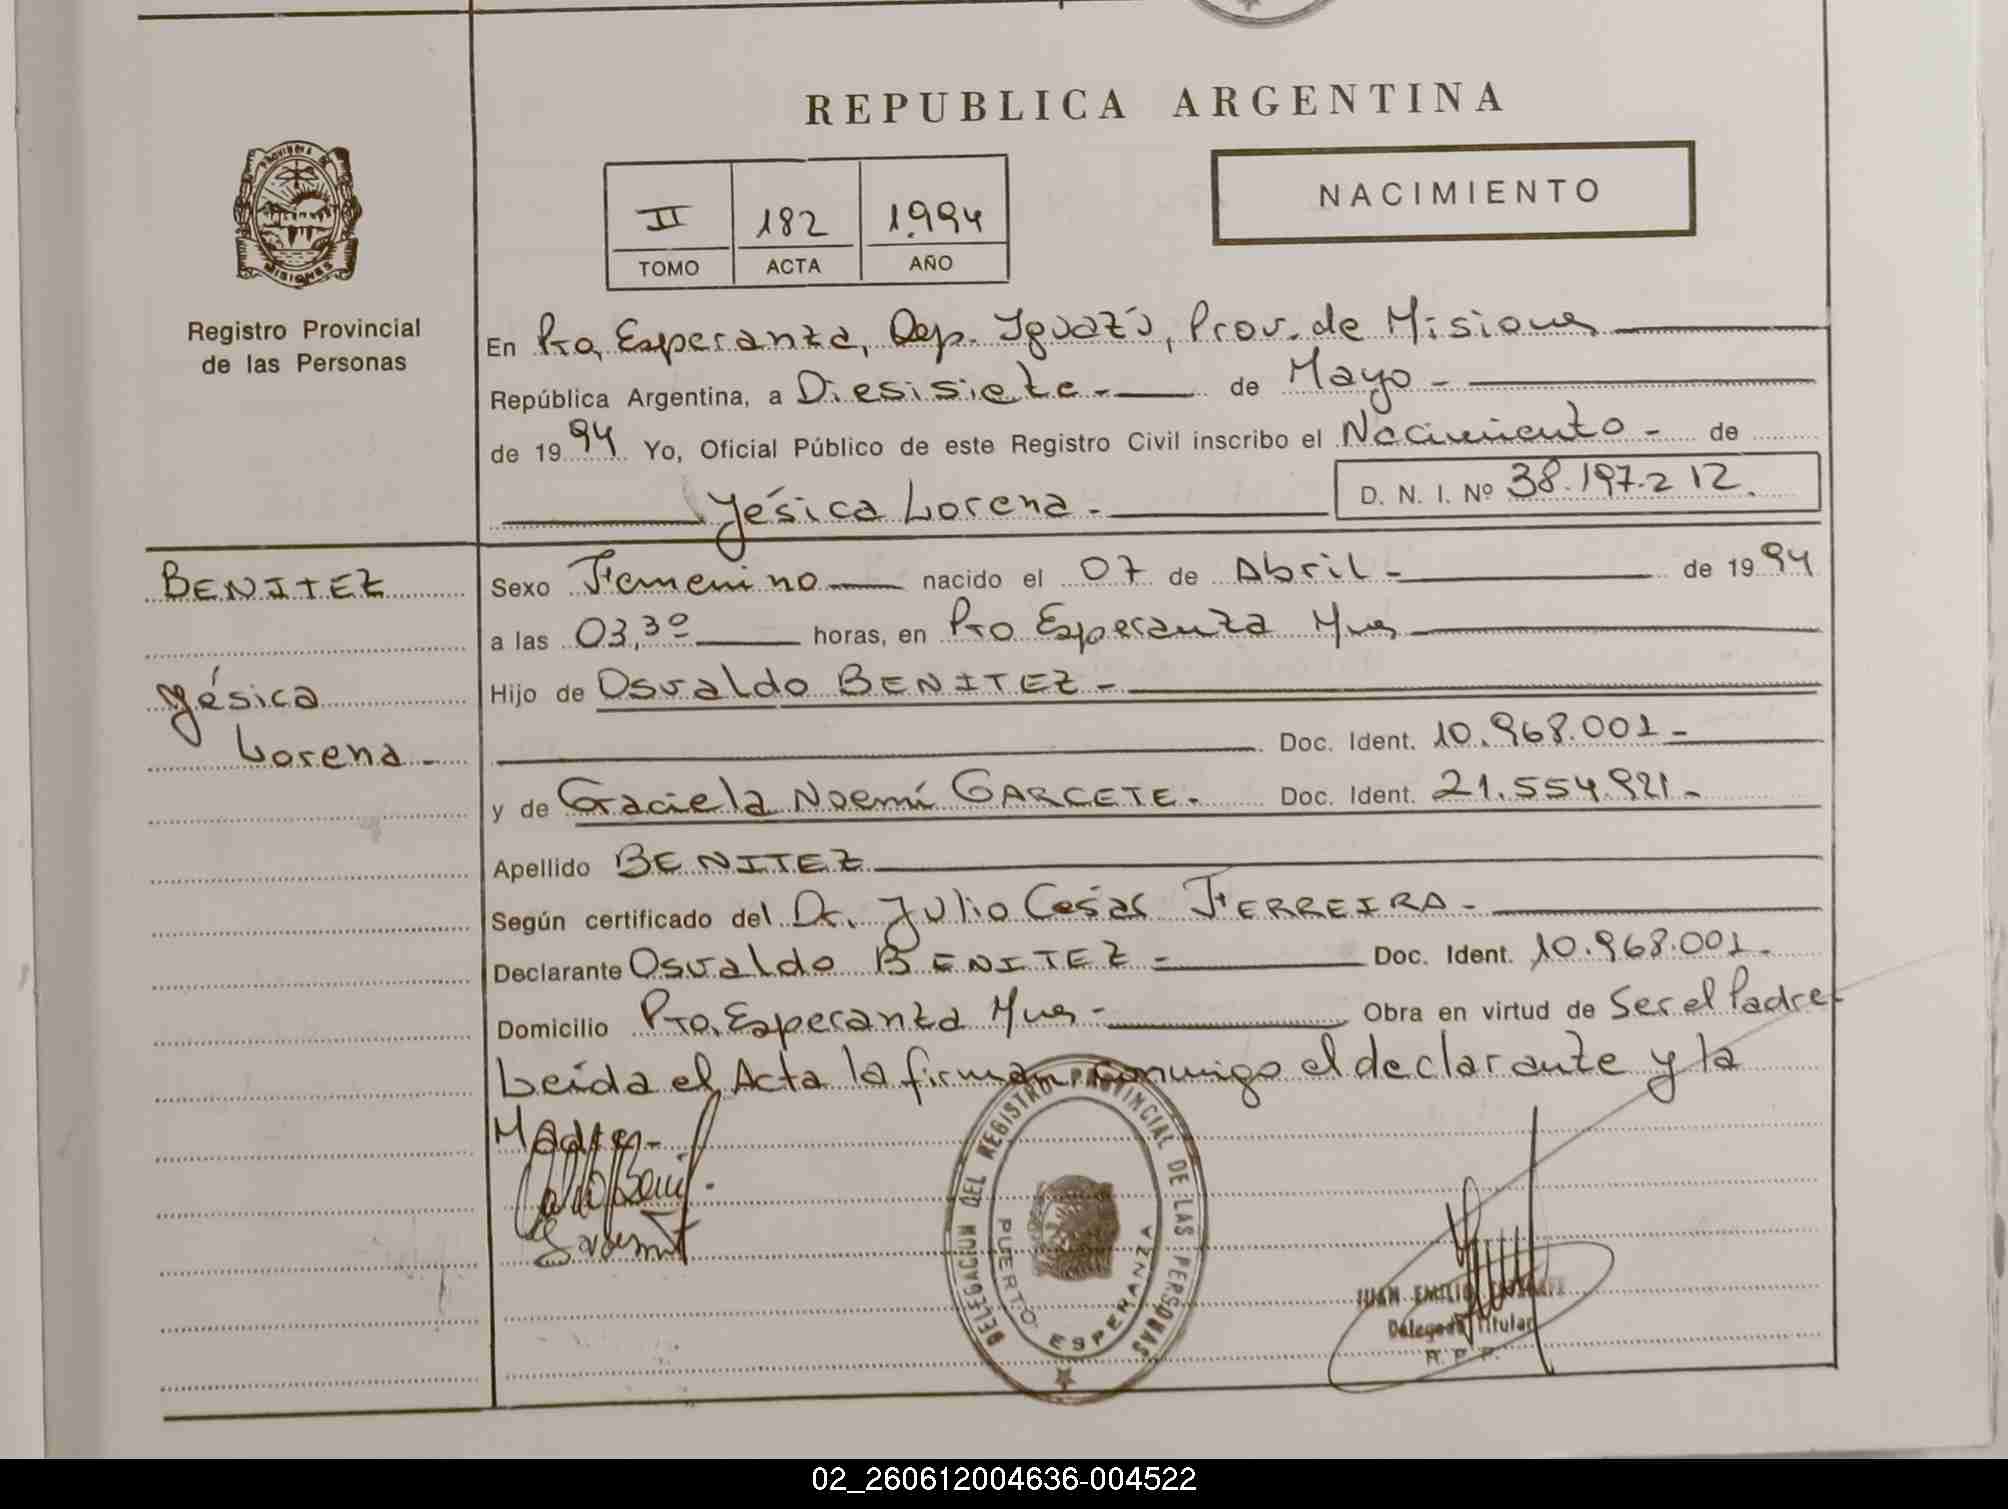 REPUBLICA ARGENTINA
NACIMIENTO
II 182 1.994
TOMO ACTA AÑO
PROVINCIA DE
MISIONES
Registro Provincial
de las Personas
En Pto, Esperanza, Dep. Iguazú, Prov. de Misiones
República Argentina, a Diesisiete.- de Mayo -
de 1994 Yo, Oficial Público de este Registro Civil inscribo el Nacimiento - de
Yésica Lorena.-
D. N. I. Nº 38.197.212.
BENITEZ
Yésica
Lorena -
Sexo Femenino nacido el 07 de Abril - de 1994
a las 03,30 horas, en Pto Esperanza Mnes
Hijo de Osvaldo BENITEZ -
Doc. Ident. 10.968.001 -
y de Graciela Noemí GARCETE. Doc. Ident. 21.554.921 -
Apellido BENITEZ
Según certificado del Dr. Julio César FERREIRA -
Declarante Osvaldo BENITEZ - Doc. Ident. 10.968.001 -
Domicilio Pto. Esperanza Mnes - Obra en virtud de Ser el Padre-
Leída el Acta la firman conmigo el declarante y la
Madre.-
DELEGACION DEL REGISTRO PROVINCIAL DE LAS PERSONAS
PUERTO ESPERANZA
JUAN EMILIO
Delegado Titular
R. P. P.
02_260612004636-004522